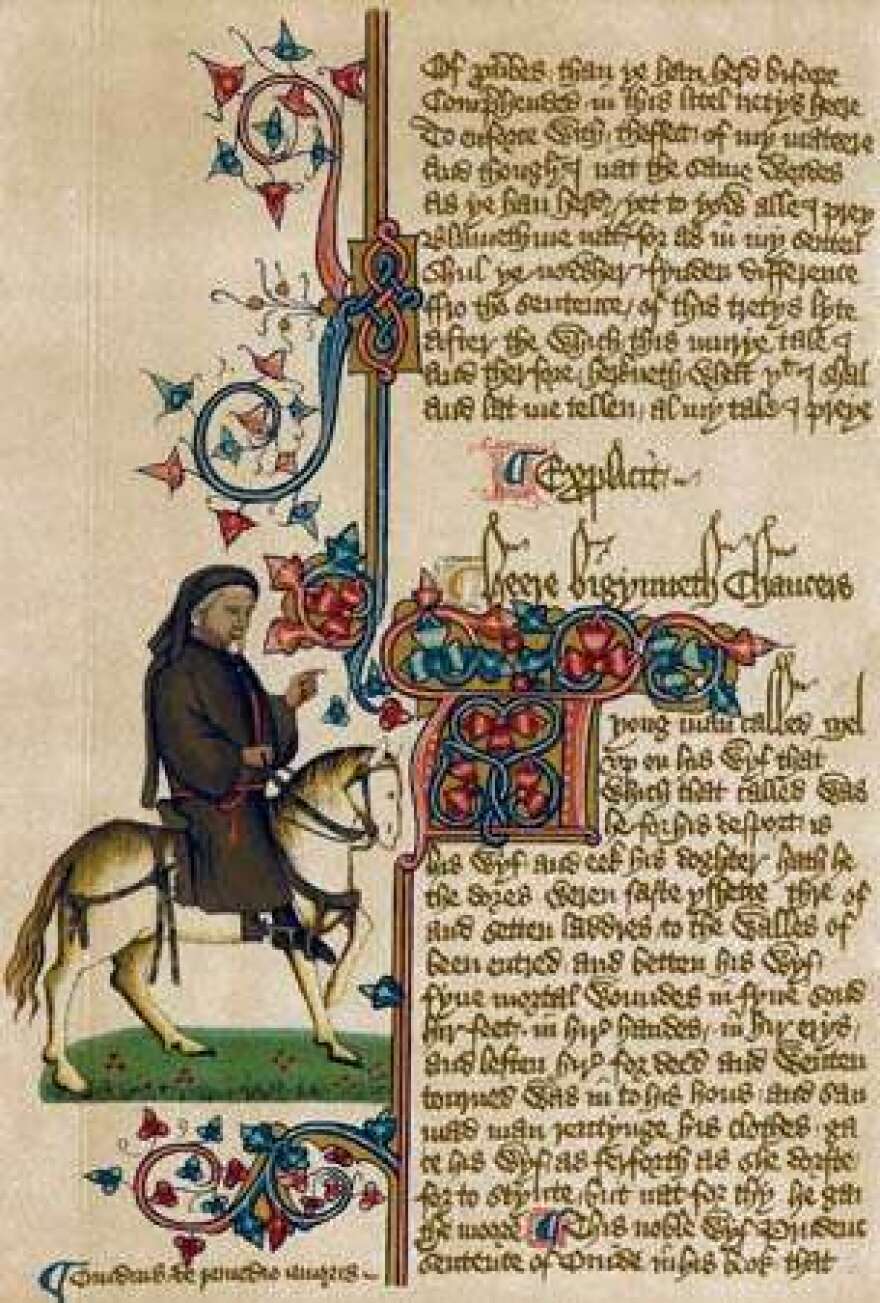 Of than ye han herd bifoore
Comprehended in this litel tretys heere
To enforce with theffect of my mateere
And though I nat the same wordes
As ye han herd / yet to yow alle I prey
Blameth me nat for as in my senten
Shul ye nowher fynden difference
ffro the sentence / of this tretys lyte
After the which this murye tale I
And therfore herkneth what yt I shal
And lat me tellen al my tale I preye
Explicit
Heere bigynneth Chaucers
yong man called Mel
vp on his wyf that
which that called was
he for his desport is
his wyf and eek his doghter hath he
the dores weren faste yshette thre of
and setten laddres to the walles of
been entred and betten his wyf
fyue mortal woundes in fyue sond
hir feet in hir handes / in hir erys /
and leften hir for deed and wenten
torned was in to his hous and saugh
mad man rentynge his clothes ga
te his wyf as ferforth as she dorste
for to stynte but nat for thy he gan
the moore This noble wyf Prudenc
sentence of Ouide in his book that
Ouidius de remedio amoris